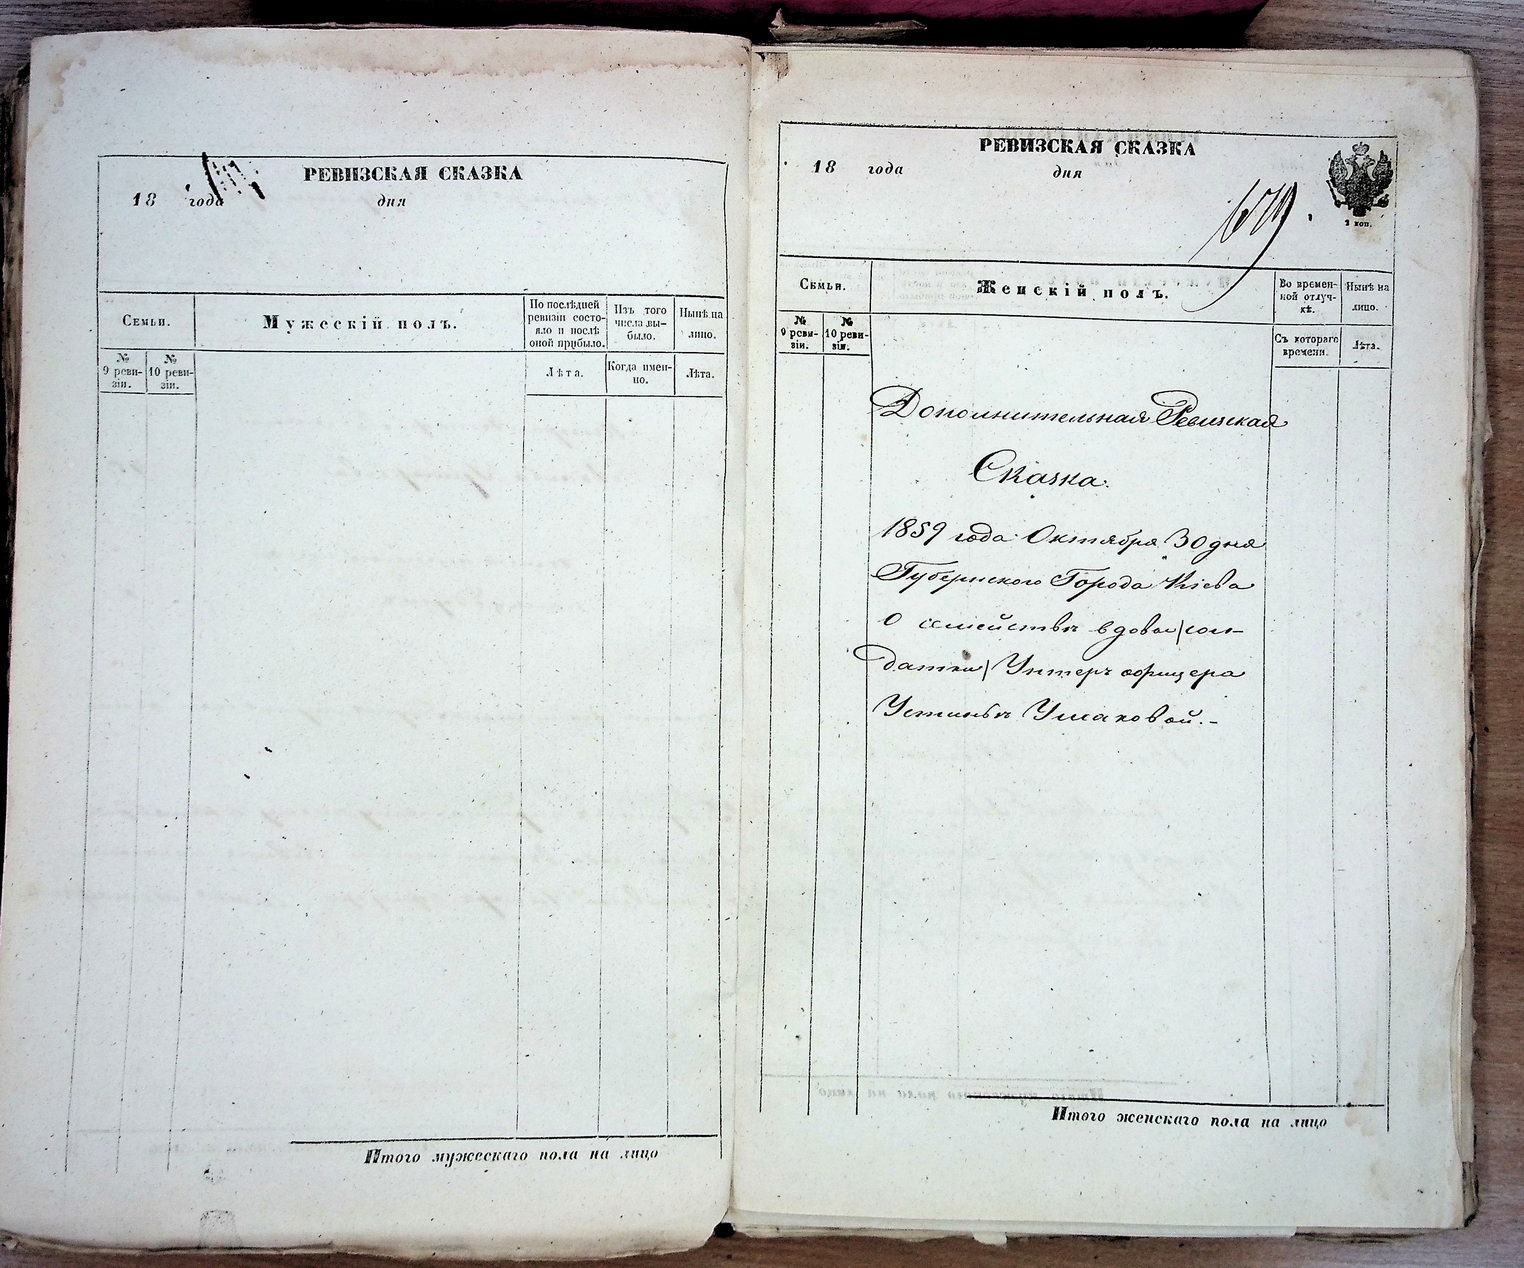 РЕВИЗСКАЯ СКАЗКА
18 года дня
Семьи.
Мужескій полъ.
По послѣдней ревизіи состо-
яло и послѣ
оной прибыло.
Изъ того
числа вы-
было.
Нынѣ на
лицо.
№
9 реви-
зіи.
№
10 реви-
зіи.
Лѣта.
Когда имен-
но.
Лѣта.
Итого мужескаго пола на лицо
РЕВИЗСКАЯ СКАЗКА
18 года дня
2 коп.
Семьи.
Женскій полъ.
Во времен-
ной отлуч-
кѣ.
Нынѣ на
лицо.
№
9 реви-
зіи.
№
10 реви-
зіи.
Съ котораго
времени.
Лѣта.
Дополнительная Ревизская
Сказка.
1859 года Октября 30 дня
Губернского Города Кіева
О семействѣ вдовы /сол-
датки/ Унтеръ офицера
Устиньѣ Ушаковой.-
Итого женскаго пола на лицо